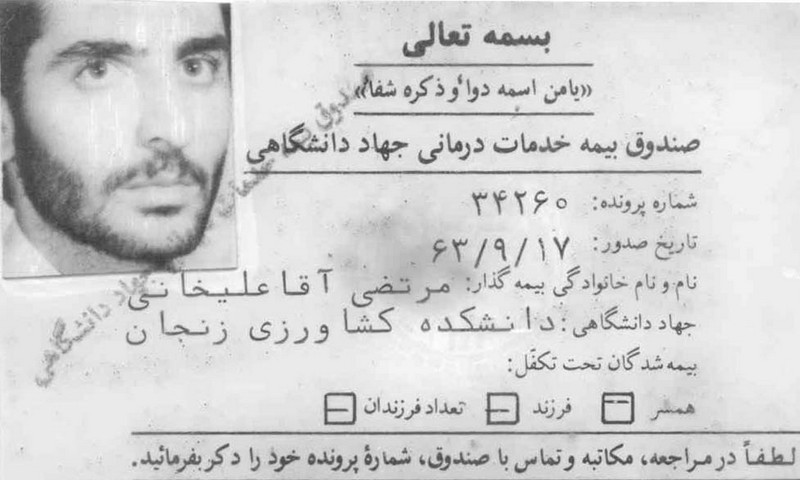 بسمه تعالی
«یامن اسمه دواٴ وذکره شفاٴ»
صندوق بیمه خدمات درمانی جهاد دانشگاهی
شماره پرونده: ۳۴۲۶۰
تاریخ صدور: ۶۳/۹/۱۷
نام و نام خانوادگی بیمه گذار: مرتضی آقاعلیخانی
جهاد دانشگاهی: دانشکده کشاورزی زنجان
بیمه شدگان تحت تکفّل:
همسر -- فرزند — تعداد فرزندان —
لطفاً در مراجعه، مکاتبه و تماس با صندوق، شمارهٔ پرونده خود را دکر بفرمائید.
صندوق
جهاد دانشگاهی